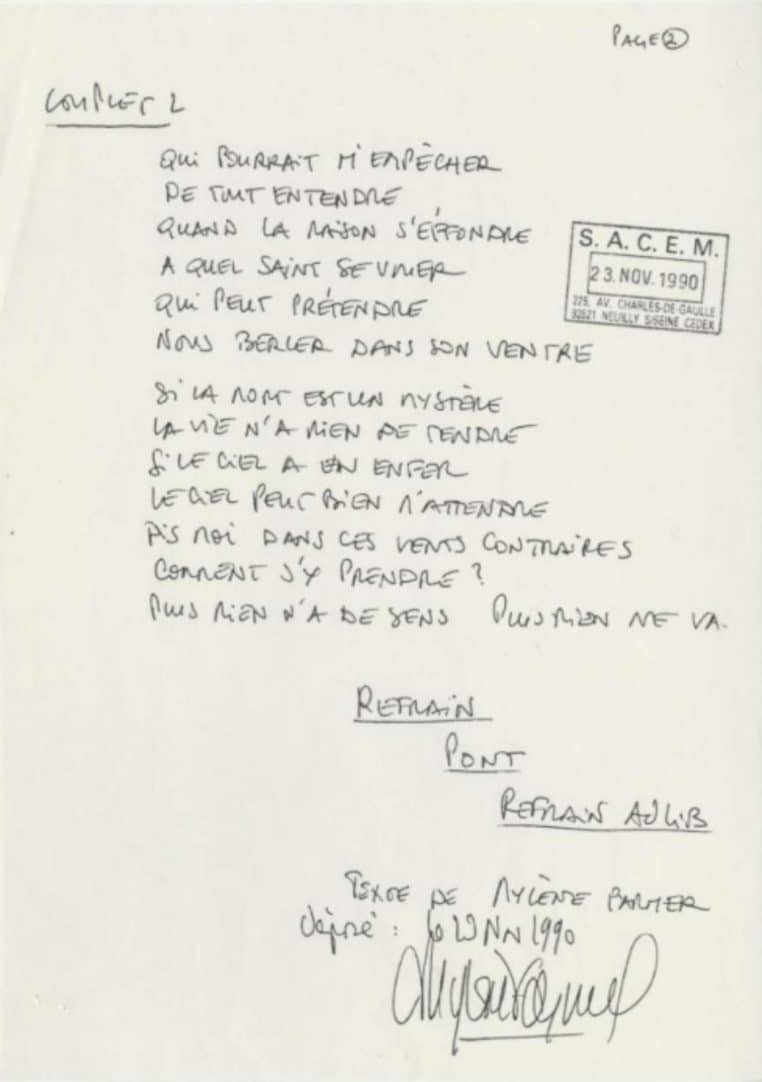 PAGE 2
COUPLET 2
QUI POURRAIT M'EMPÊCHER
DE TOUT ENTENDRE
QUAND LA RAISON S'EFFONDRE
A QUEL SAINT SE VOUER
QUI PEUT PRÉTENDRE
NOUS BERCER DANS SON VENTRE
S. A. C. E. M.
23. NOV. 1990
225, AV. CHARLES-DE-GAULLE
92521 NEUILLY S/SEINE CEDEX
SI LA MORT EST UN MYSTÈRE
LA VIE N'A RIEN DE TENDRE
SI LE CIEL A UN ENFER
LE CIEL PEUT BIEN M'ATTENDRE
DIS MOI DANS CES VENTS CONTRAIRES
COMMENT S'Y PRENDRE ?
PLUS RIEN N'A DE SENS PLUS RIEN NE VA.
REFRAIN
PONT
REFRAIN AD LIB
TEXTE DE MYLÈNE FARMER
déposé : le 23 NOV 1990
Mylène Farmer